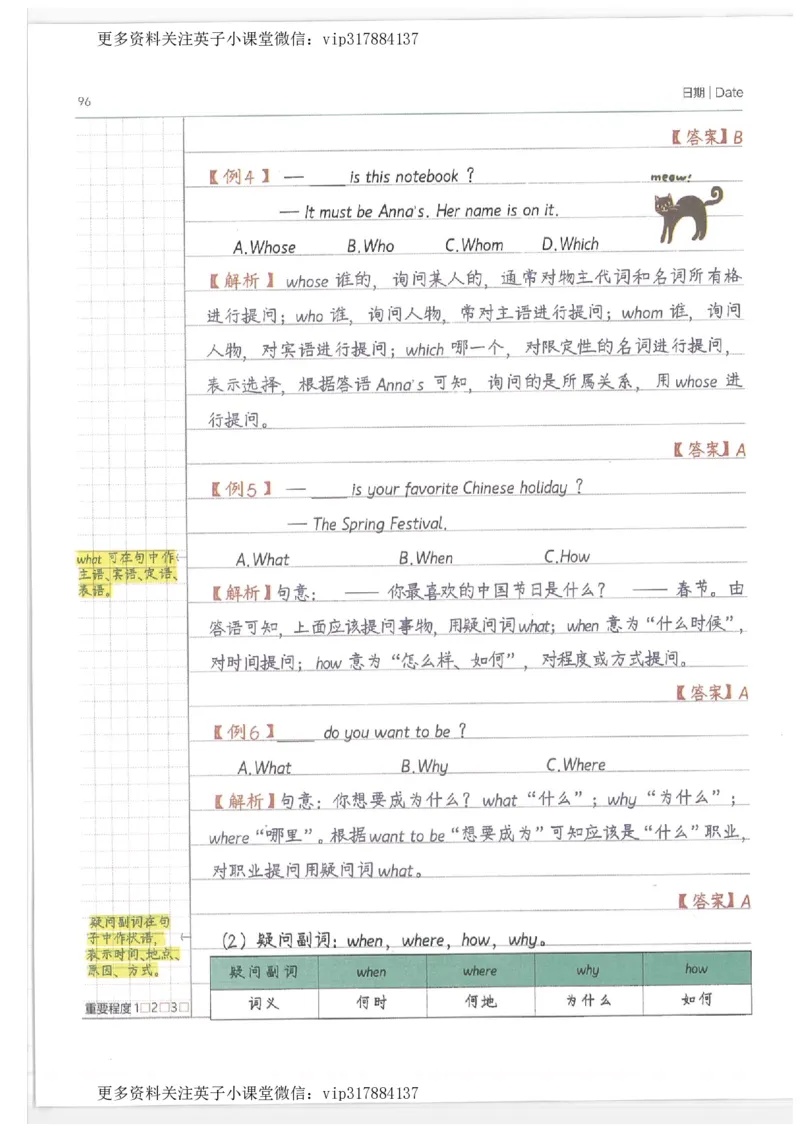 更多资料关注英子小课堂微信：vip317884137
96
日期 | Date
【答案】B
【例4】 — ____ is this notebook ?
— It must be Anna's. Her name is on it.
meow!
A.Whose B.Who C.Whom D.Which
【解析】 whose 谁的，询问某人的，通常对物主代词和名词所有格
进行提问；who 谁，询问人物，常对主语进行提问；whom 谁，询问
人物，对宾语进行提问；which 哪一个，对限定性的名词进行提问，
表示选择，根据答语 Anna's 可知，询问的是所属关系，用 whose 进
行提问。
【答案】A
【例5】 — ____ is your favorite Chinese holiday ?
— The Spring Festival.
A.What B.When C.How
what 可在句中作
主语、宾语、定语、
表语。
【解析】句意： —— 你最喜欢的中国节日是什么？ —— 春节。由
答语可知，上面应该提问事物，用疑问词what；when 意为“什么时候”，
对时间提问；how 意为“怎么样、如何”，对程度或方式提问。
【答案】A
【例6】____ do you want to be ?
A.What B.Why C.Where
【解析】句意：你想要成为什么？what“什么”；why“为什么”；
where“哪里”。根据want to be“想要成为”可知应该是“什么”职业，
对职业提问用疑问词what。
【答案】A
疑问副词在句
子中作状语，
表示时间、地点、
原因、方式。
（2）疑问副词：when，where，how，why。
疑问副词 when where why how
词义 何时 何地 为什么 如何
重要程度 1□2□3□
更多资料关注英子小课堂微信：vip317884137